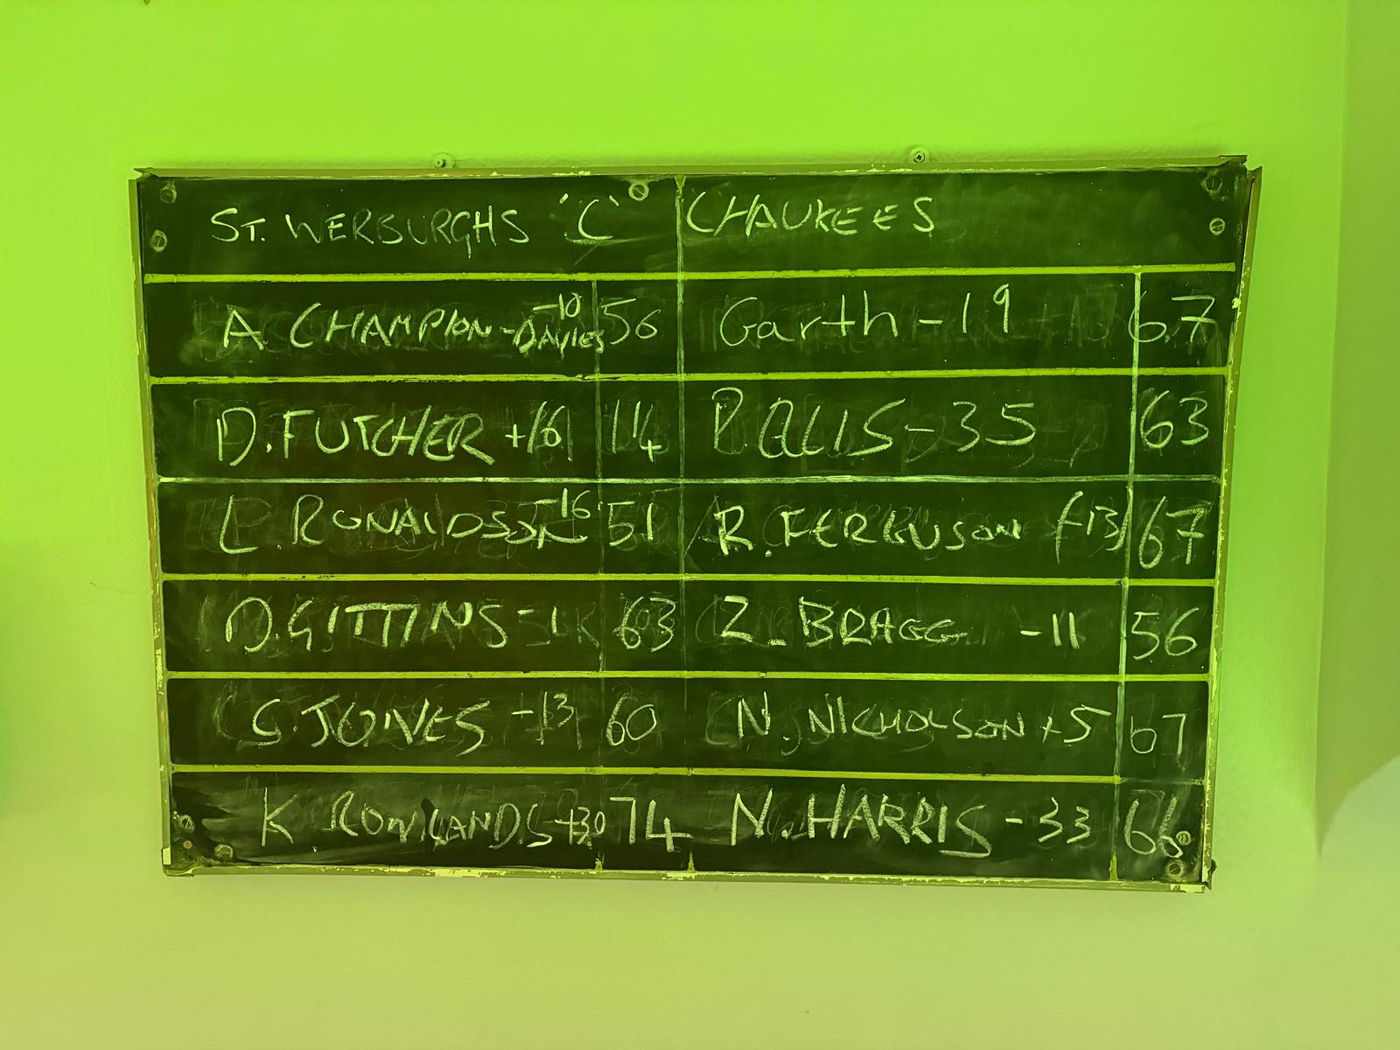 ST. WERBURGHS 'C' CHAUKEES
A CHAMPION-DAVIES -10 56 Garth -19 67
D. FUTCHER +16 114 P. ELLIS -35 63
L. RONALDSON -16 51 R. FERGUSON (-13) 67
D. GITTINS -1 63 Z. BRAGG -11 56
G. JONES -13 60 N. NICHOLSON +5 67
K ROWLANDS +30 74 N. HARRIS -33 66